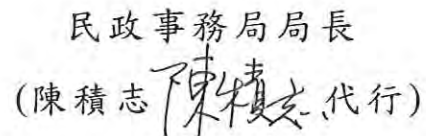 民政事務局局長
(陳積志陳積志代行)